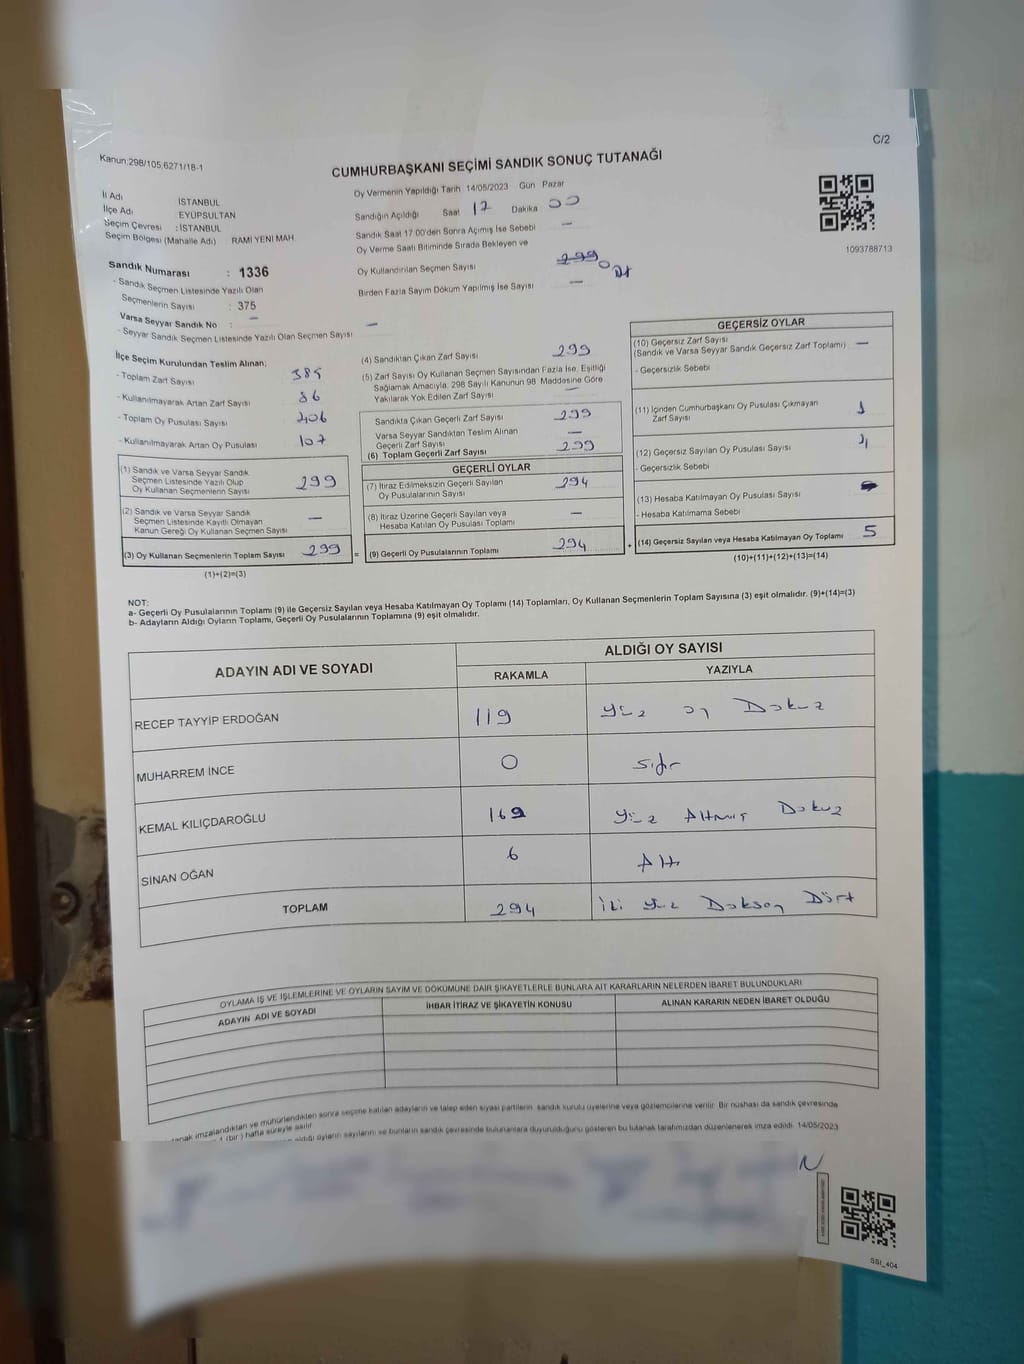 C/2
Kanun:298/105,6271/18-1
CUMHURBAŞKANI SEÇİMİ SANDIK SONUÇ TUTANAĞI
İl Adı İSTANBUL
İlçe Adı EYÜPSULTAN
Seçim Çevresi : İSTANBUL
Seçim Bölgesi (Mahalle Adı) RAMİ YENİ MAH.
Oy Vermenin Yapıldığı Tarih 14/05/2023 Gün Pazar
Sandığın Açıldığı Saat 17 Dakika 00
Sandık Saat 17:00'den Sonra Açımış İse Sebebi —
Oy Verme Saati Bitiminde Sırada Bekleyen ve
Oy Kullandırılan Seçmen Sayısı 299 0
Birden Fazla Sayım Döküm Yapılmış İse Sayısı —
1093788713
Sandık Numarası : 1336
- Sandık Seçmen Listesinde Yazılı Olan
Seçmenlerin Sayısı : 375
Varsa Seyyar Sandık No : —
- Seyyar Sandık Seçmen Listesinde Yazılı Olan Seçmen Sayısı —
İlçe Seçim Kurulundan Teslim Alınan;
- Toplam Zarf Sayısı 385
- Kullanılmayarak Artan Zarf Sayısı 86
- Toplam Oy Pusulası Sayısı 406
- Kullanılmayarak Artan Oy Pusulası 107
(1) Sandık ve Varsa Seyyar Sandık
Seçmen Listesinde Yazılı Olup
Oy Kullanan Seçmenlerin Sayısı 299
(2) Sandık ve Varsa Seyyar Sandık
Seçmen Listesinde Kayıtlı Olmayan
Kanun Gereği Oy Kullanan Seçmen Sayısı —
(3) Oy Kullanan Seçmenlerin Toplam Sayısı 299
(1)+(2)=(3)
(4) Sandıktan Çıkan Zarf Sayısı 299
(5) Zarf Sayısı Oy Kullanan Seçmen Sayısından Fazla İse, Eşitliği
Sağlamak Amacıyla, 298 Sayılı Kanunun 98. Maddesine Göre
Yakılarak Yok Edilen Zarf Sayısı —
Sandıkta Çıkan Geçerli Zarf Sayısı 299
Varsa Seyyar Sandıktan Teslim Alınan
Geçerli Zarf Sayısı —
(6) Toplam Geçerli Zarf Sayısı 299
GEÇERLİ OYLAR
(7) İtiraz Edilmeksizin Geçerli Sayılan
Oy Pusulalarının Sayısı 294
(8) İtiraz Üzerine Geçerli Sayılan veya
Hesaba Katılan Oy Pusulası Toplamı —
= (9) Geçerli Oy Pusulalarının Toplamı 294
GEÇERSİZ OYLAR
(10) Geçersiz Zarf Sayısı
(Sandık ve Varsa Seyyar Sandık Geçersiz Zarf Toplamı) —
- Geçersizlik Sebebi
(11) İçinden Cumhurbaşkanı Oy Pusulası Çıkmayan
Zarf Sayısı 1
(12) Geçersiz Sayılan Oy Pusulası Sayısı
- Geçersizlik Sebebi
(13) Hesaba Katılmayan Oy Pusulası Sayısı
- Hesaba Katılmama Sebebi
+ (14) Geçersiz Sayılan veya Hesaba Katılmayan Oy Toplamı 5
(10)+(11)+(12)+(13)=(14)
NOT:
a- Geçerli Oy Pusulalarının Toplamı (9) ile Geçersiz Sayılan veya Hesaba Katılmayan Oy Toplamı (14) Toplamları, Oy Kullanan Seçmenlerin Toplam Sayısına (3) eşit olmalıdır. (9)+(14)=(3)
b- Adayların Aldığı Oyların Toplamı, Geçerli Oy Pusulalarının Toplamına (9) eşit olmalıdır.
ADAYIN ADI VE SOYADI ALDIĞI OY SAYISI
RAKAMLA YAZIYLA
RECEP TAYYİP ERDOĞAN 119 Yüz on Dokuz
MUHARREM İNCE 0 Sıfır
KEMAL KILIÇDAROĞLU 169 Yüz Altmış Dokuz
SİNAN OĞAN 6 Altı
TOPLAM 294 İki Yüz Doksan Dört
OYLAMA İŞ VE İŞLEMLERİNE VE OYLARIN SAYIM VE DÖKÜMÜNE DAİR ŞİKAYETLERLE BUNLARA AİT KARARLARIN NELERDEN İBARET BULUNDUKLARI
ADAYIN ADI VE SOYADI İHBAR İTİRAZ VE ŞİKAYETİN KONUSU ALINAN KARARIN NEDEN İBARET OLDUĞU
imzalandıktan ve mühürlendikten sonra seçime katılan adayların ve talep eden siyasi partilerin sandık kurulu üyelerine veya gözlemcilerine verilir. Bir nüshası da sandık çevresinde
1 (bir) hafta süreyle asılır.
aldığı oyların sayılarını ve bunların sandık çevresinde bulunanlara duyurulduğunu gösteren bu tutanak tarafımızdan düzenlenerek imza edildi. 14/05/2023
SSİ_404